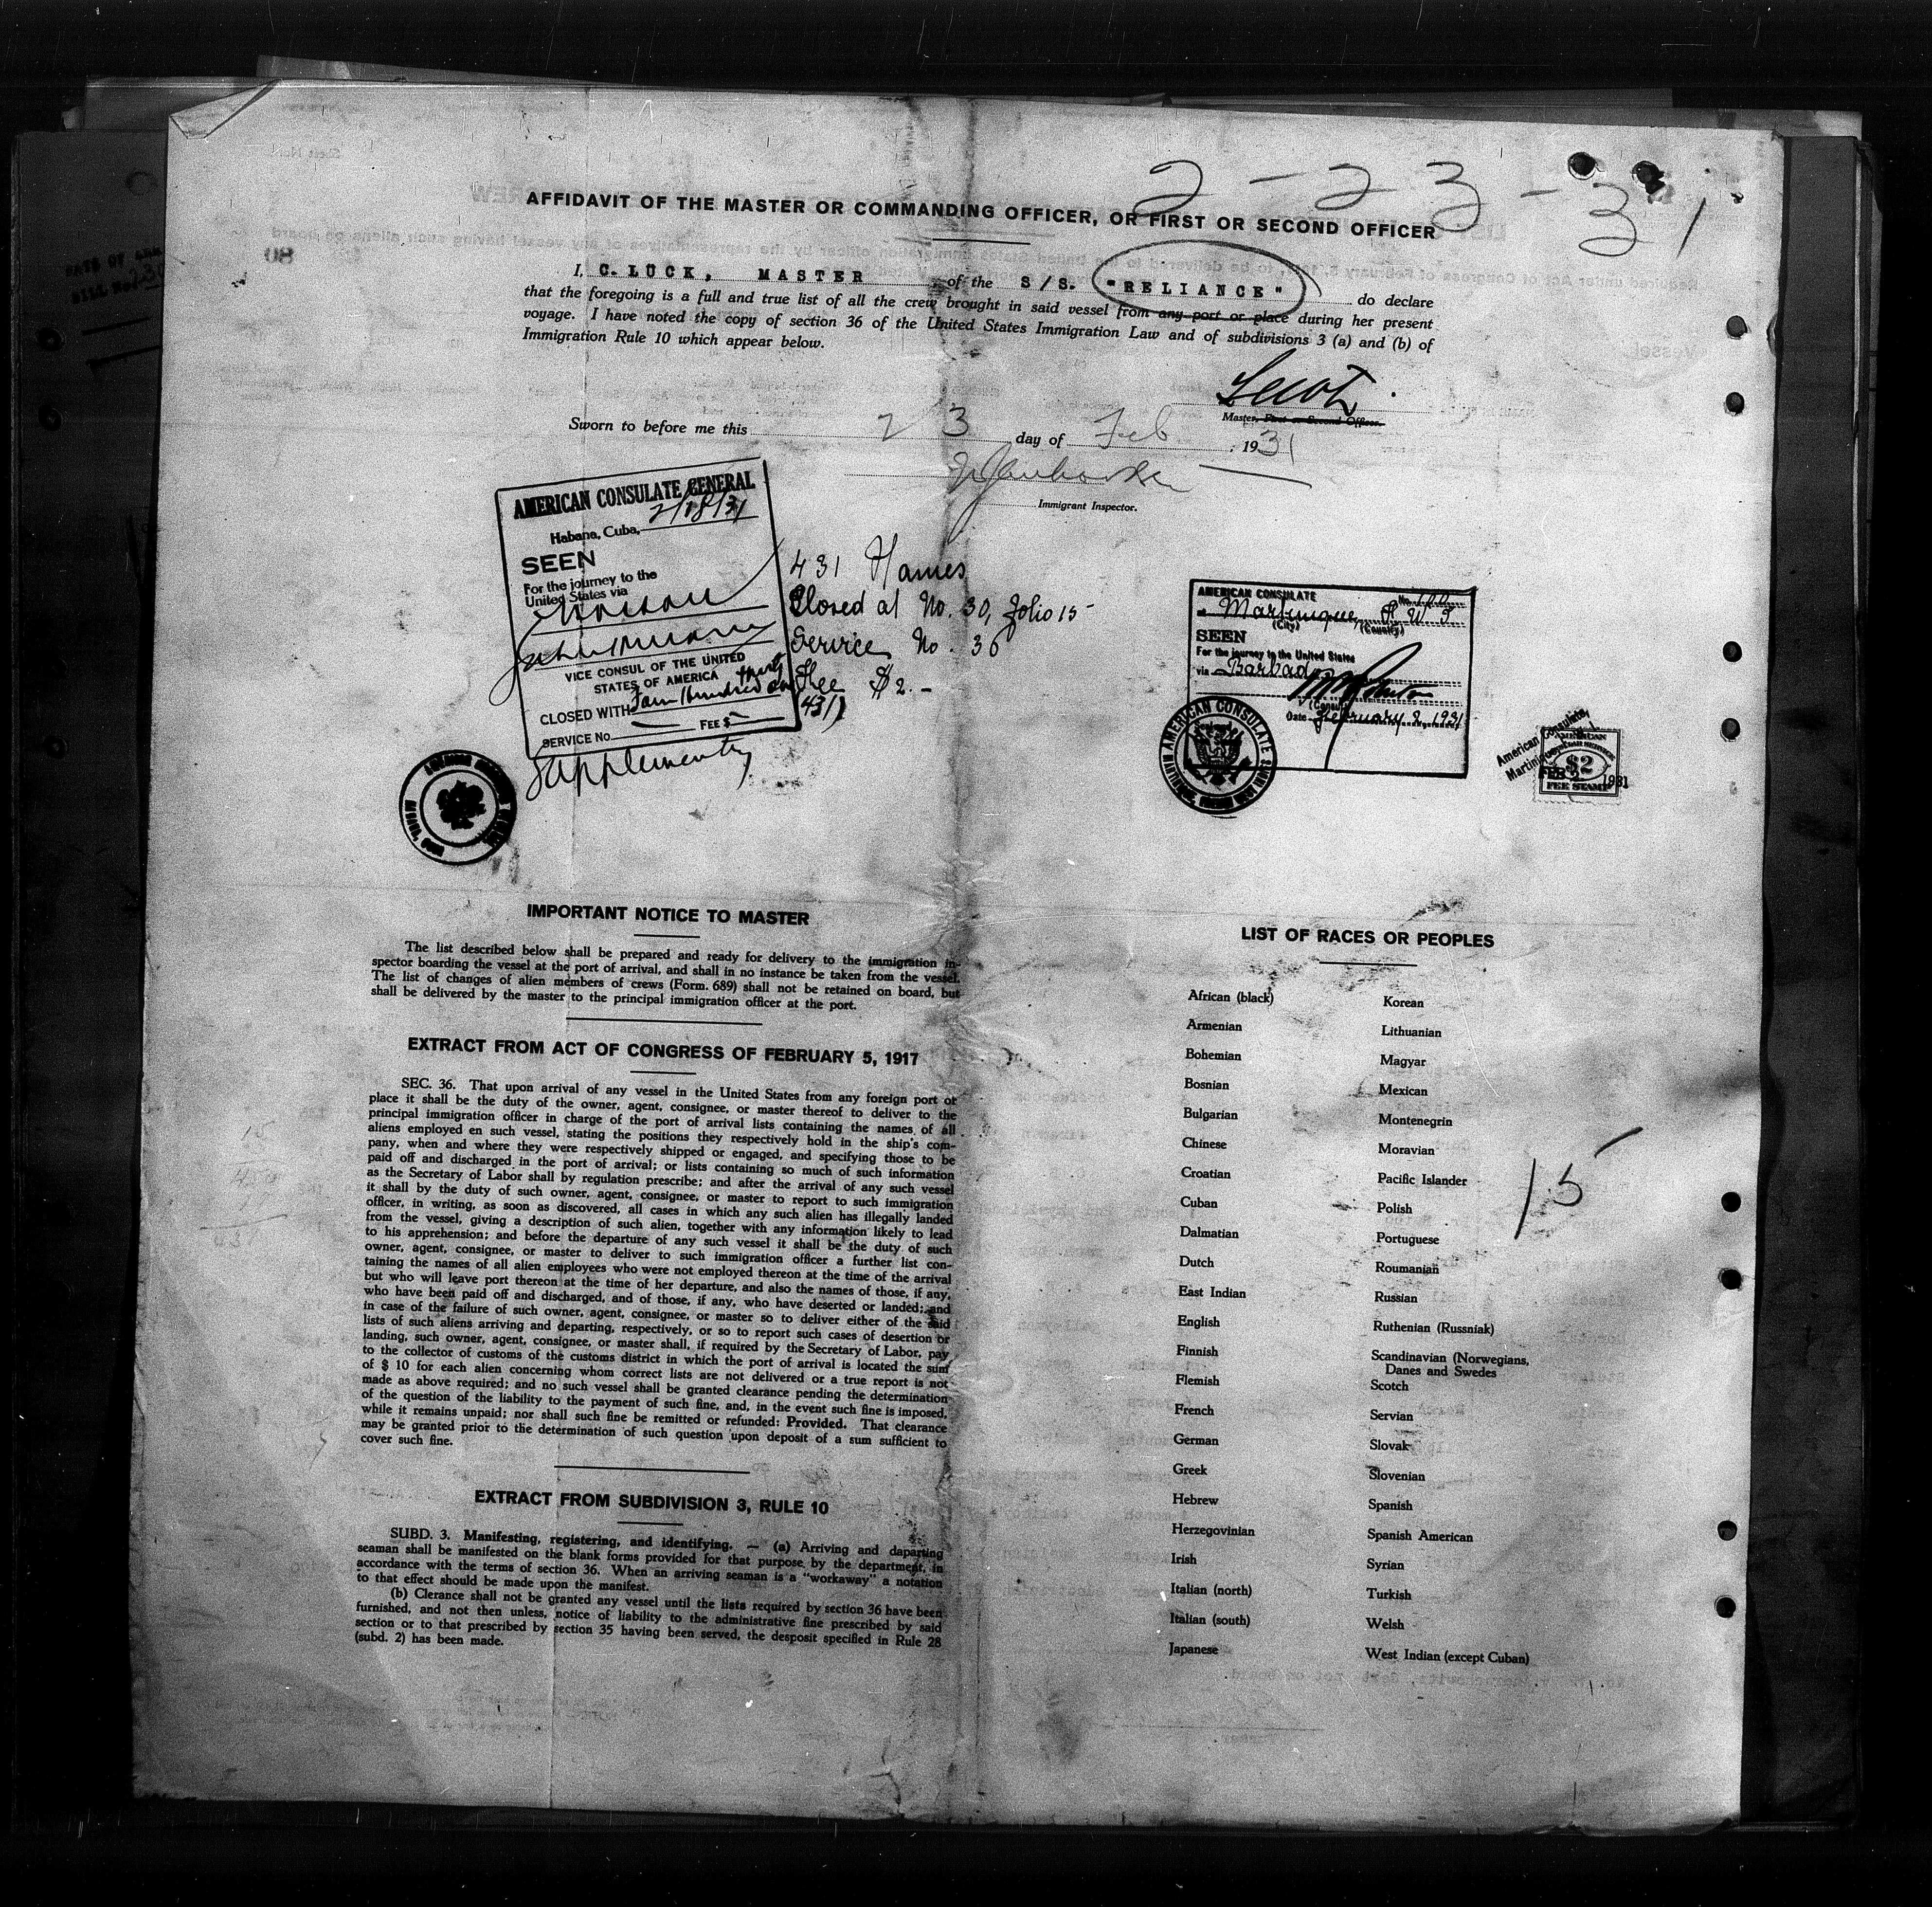 2-23-31
AFFIDAVIT OF THE MASTER OR COMMANDING OFFICER, OR FIRST OR SECOND OFFICER
I, C. LÜCK, MASTER of the S/S. "RELIANCE" do declare
that the foregoing is a full and true list of all the crew brought in said vessel from any port or place during her present
voyage. I have noted the copy of section 36 of the United States Immigration Law and of subdivisions 3 (a) and (b) of
Immigration Rule 10 which appear below.
Master, First or Second Officer.
Sworn to before me this 23 day of Feb , 1931
Immigrant Inspector.
AMERICAN CONSULATE GENERAL
Habana, Cuba, 2/18/31
SEEN
For the journey to the
United States via
VICE CONSUL OF THE UNITED
STATES OF AMERICA
CLOSED WITH Four hundred thirty one
SERVICE No. FEE $
Supplementry
431 Names
Closed at No. 30, folio 15
Service No. 36
Fee $2.-
431)
AMERICAN CONSULATE No.
at Martinique, F. W. I.
(City) (Country)
SEEN
For the journey to the United States
via Barbados
(Consul)
Date February 2, 1931
AMERICAN CONSULATE
MARTINIQUE, FRENCH WEST INDIES
American Consulate,
Martinique
AMERICAN
CONSULAR SERVICE
$2
FEB 2 1931
FEE STAMP
IMPORTANT NOTICE TO MASTER
The list described below shall be prepared and ready for delivery to the immigration in-
spector boarding the vessel at the port of arrival, and shall in no instance be taken from the vessel.
The list of changes of alien members of crews (Form. 689) shall not be retained on board, but
shall be delivered by the master to the principal immigration officer at the port.
EXTRACT FROM ACT OF CONGRESS OF FEBRUARY 5, 1917
SEC. 36. That upon arrival of any vessel in the United States from any foreign port or
place it shall be the duty of the owner, agent, consignee, or master thereof to deliver to the
principal immigration officer in charge of the port of arrival lists containing the names of all
aliens employed en such vessel, stating the positions they respectively hold in the ship's com-
pany, when and where they were respectively shipped or engaged, and specifying those to be
paid off and discharged in the port of arrival; or lists containing so much of such information
as the Secretary of Labor shall by regulation prescribe; and after the arrival of any such vessel
it shall by the duty of such owner, agent, consignee, or master to report to such immigration
officer, in writing, as soon as discovered, all cases in which any such alien has illegally landed
from the vessel, giving a description of such alien, together with any information likely to lead
to his apprehension; and before the departure of any such vessel it shall be the duty of such
owner, agent, consignee, or master to deliver to such immigration officer a further list con-
taining the names of all alien employees who were not employed thereon at the time of the arrival
but who will leave port thereon at the time of her departure, and also the names of those, if any,
who have been paid off and discharged, and of those, if any, who have deserted or landed; and
in case of the failure of such owner, agent, consignee, or master so to deliver either of the said
lists of such aliens arriving and departing, respectively, or so to report such cases of desertion or
landing, such owner, agent, consignee, or master shall, if required by the Secretary of Labor, pay
to the collector of customs of the customs district in which the port of arrival is located the sum
of $ 10 for each alien concerning whom correct lists are not delivered or a true report is not
made as above required; and no such vessel shall be granted clearance pending the determination
of the question of the liability to the payment of such fine, and, in the event such fine is imposed,
while it remains unpaid; nor shall such fine be remitted or refunded: Provided. That clearance
may be granted prior to the determination of such question upon deposit of a sum sufficient to
cover such fine.
EXTRACT FROM SUBDIVISION 3, RULE 10
SUBD. 3. Manifesting, registering, and identifying. — (a) Arriving and daparting
seaman shall be manifested on the blank forms provided for that purpose by the department, in
accordance with the terms of section 36. When an arriving seaman is a "workaway" a notation
to that effect should be made upon the manifest.
(b) Clerance shall not be granted any vessel until the lists required by section 36 have been
furnished, and not then unless, notice of liability to the administrative fine prescribed by said
section or to that prescribed by section 35 having been served, the desposit specified in Rule 28
(subd. 2) has been made.
LIST OF RACES OR PEOPLES
African (black)
Armenian
Bohemian
Bosnian
Bulgarian
Chinese
Croatian
Cuban
Dalmatian
Dutch
East Indian
English
Finnish
Flemish
French
German
Greek
Hebrew
Herzegovinian
Irish
Italian (north)
Italian (south)
Japanese
Korean
Lithuanian
Magyar
Mexican
Montenegrin
Moravian
Pacific Islander
Polish
Portuguese
Roumanian
Russian
Ruthenian (Russniak)
Scandinavian (Norwegians,
Danes and Swedes
Scotch
Servian
Slovak
Slovenian
Spanish
Spanish American
Syrian
Turkish
Welsh
West Indian (except Cuban)
15